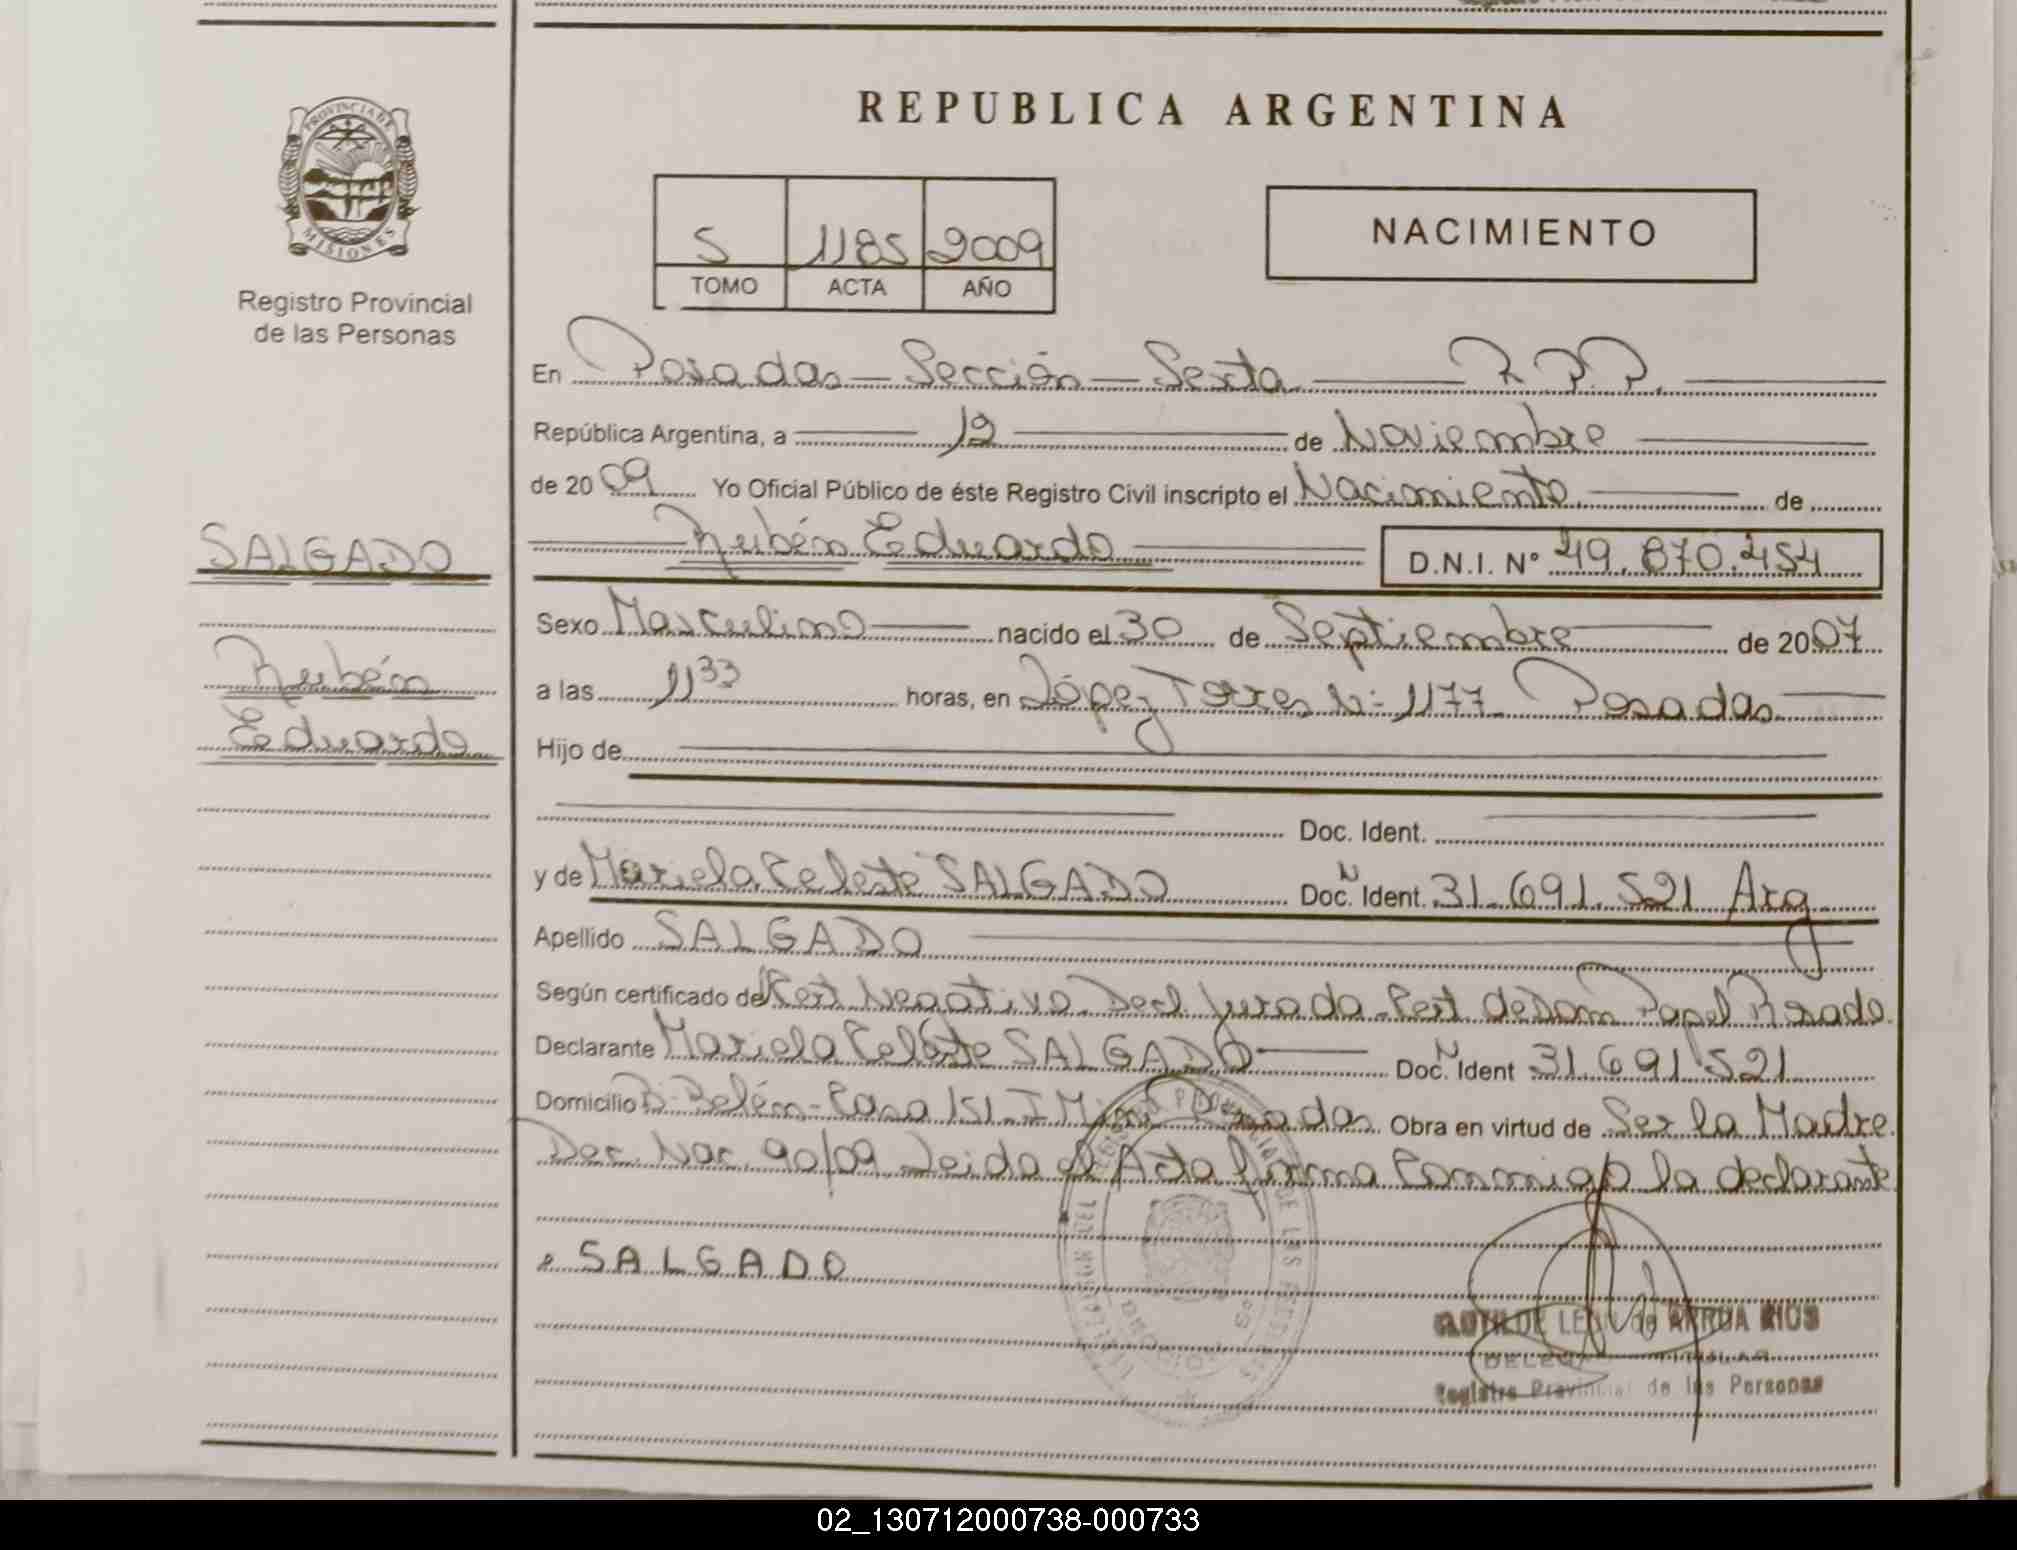 REPUBLICA ARGENTINA
PROVINCIA DE
MISIONES
Registro Provincial
de las Personas
5 1185 2009
TOMO ACTA AÑO
NACIMIENTO
En Posadas - Sección - Sexta R.P.P.
República Argentina, a 12 de Noviembre
de 2009 Yo Oficial Público de éste Registro Civil inscripto el Nacimiento de
Rubén Eduardo D.N.I. N° 49.870.454
SALGADO
Rubén
Eduardo
Sexo Masculino nacido el 30 de Septiembre de 2007
a las 11 33 horas, en López Torres N: 1177 Posadas
Hijo de
Doc. Ident.
y de Mariela Celeste SALGADO Doc. N Ident. 31.691.521 Arg
Apellido SALGADO
Según certificado de Cert Negativo Decl. Jurada Cert de Papel Rosado
Declarante Mariela Celeste SALGADO Doc. N Ident 31.691.521
Domicilio B. Belén - Casa 151 Posadas Obra en virtud de Ser la Madre
Dec. Nac. 90/09 Leida el Acta firma Conmigo la declarante
SALGADO
ARRUA RIOS
Registro Provincial de las Personas
02_130712000738-000733